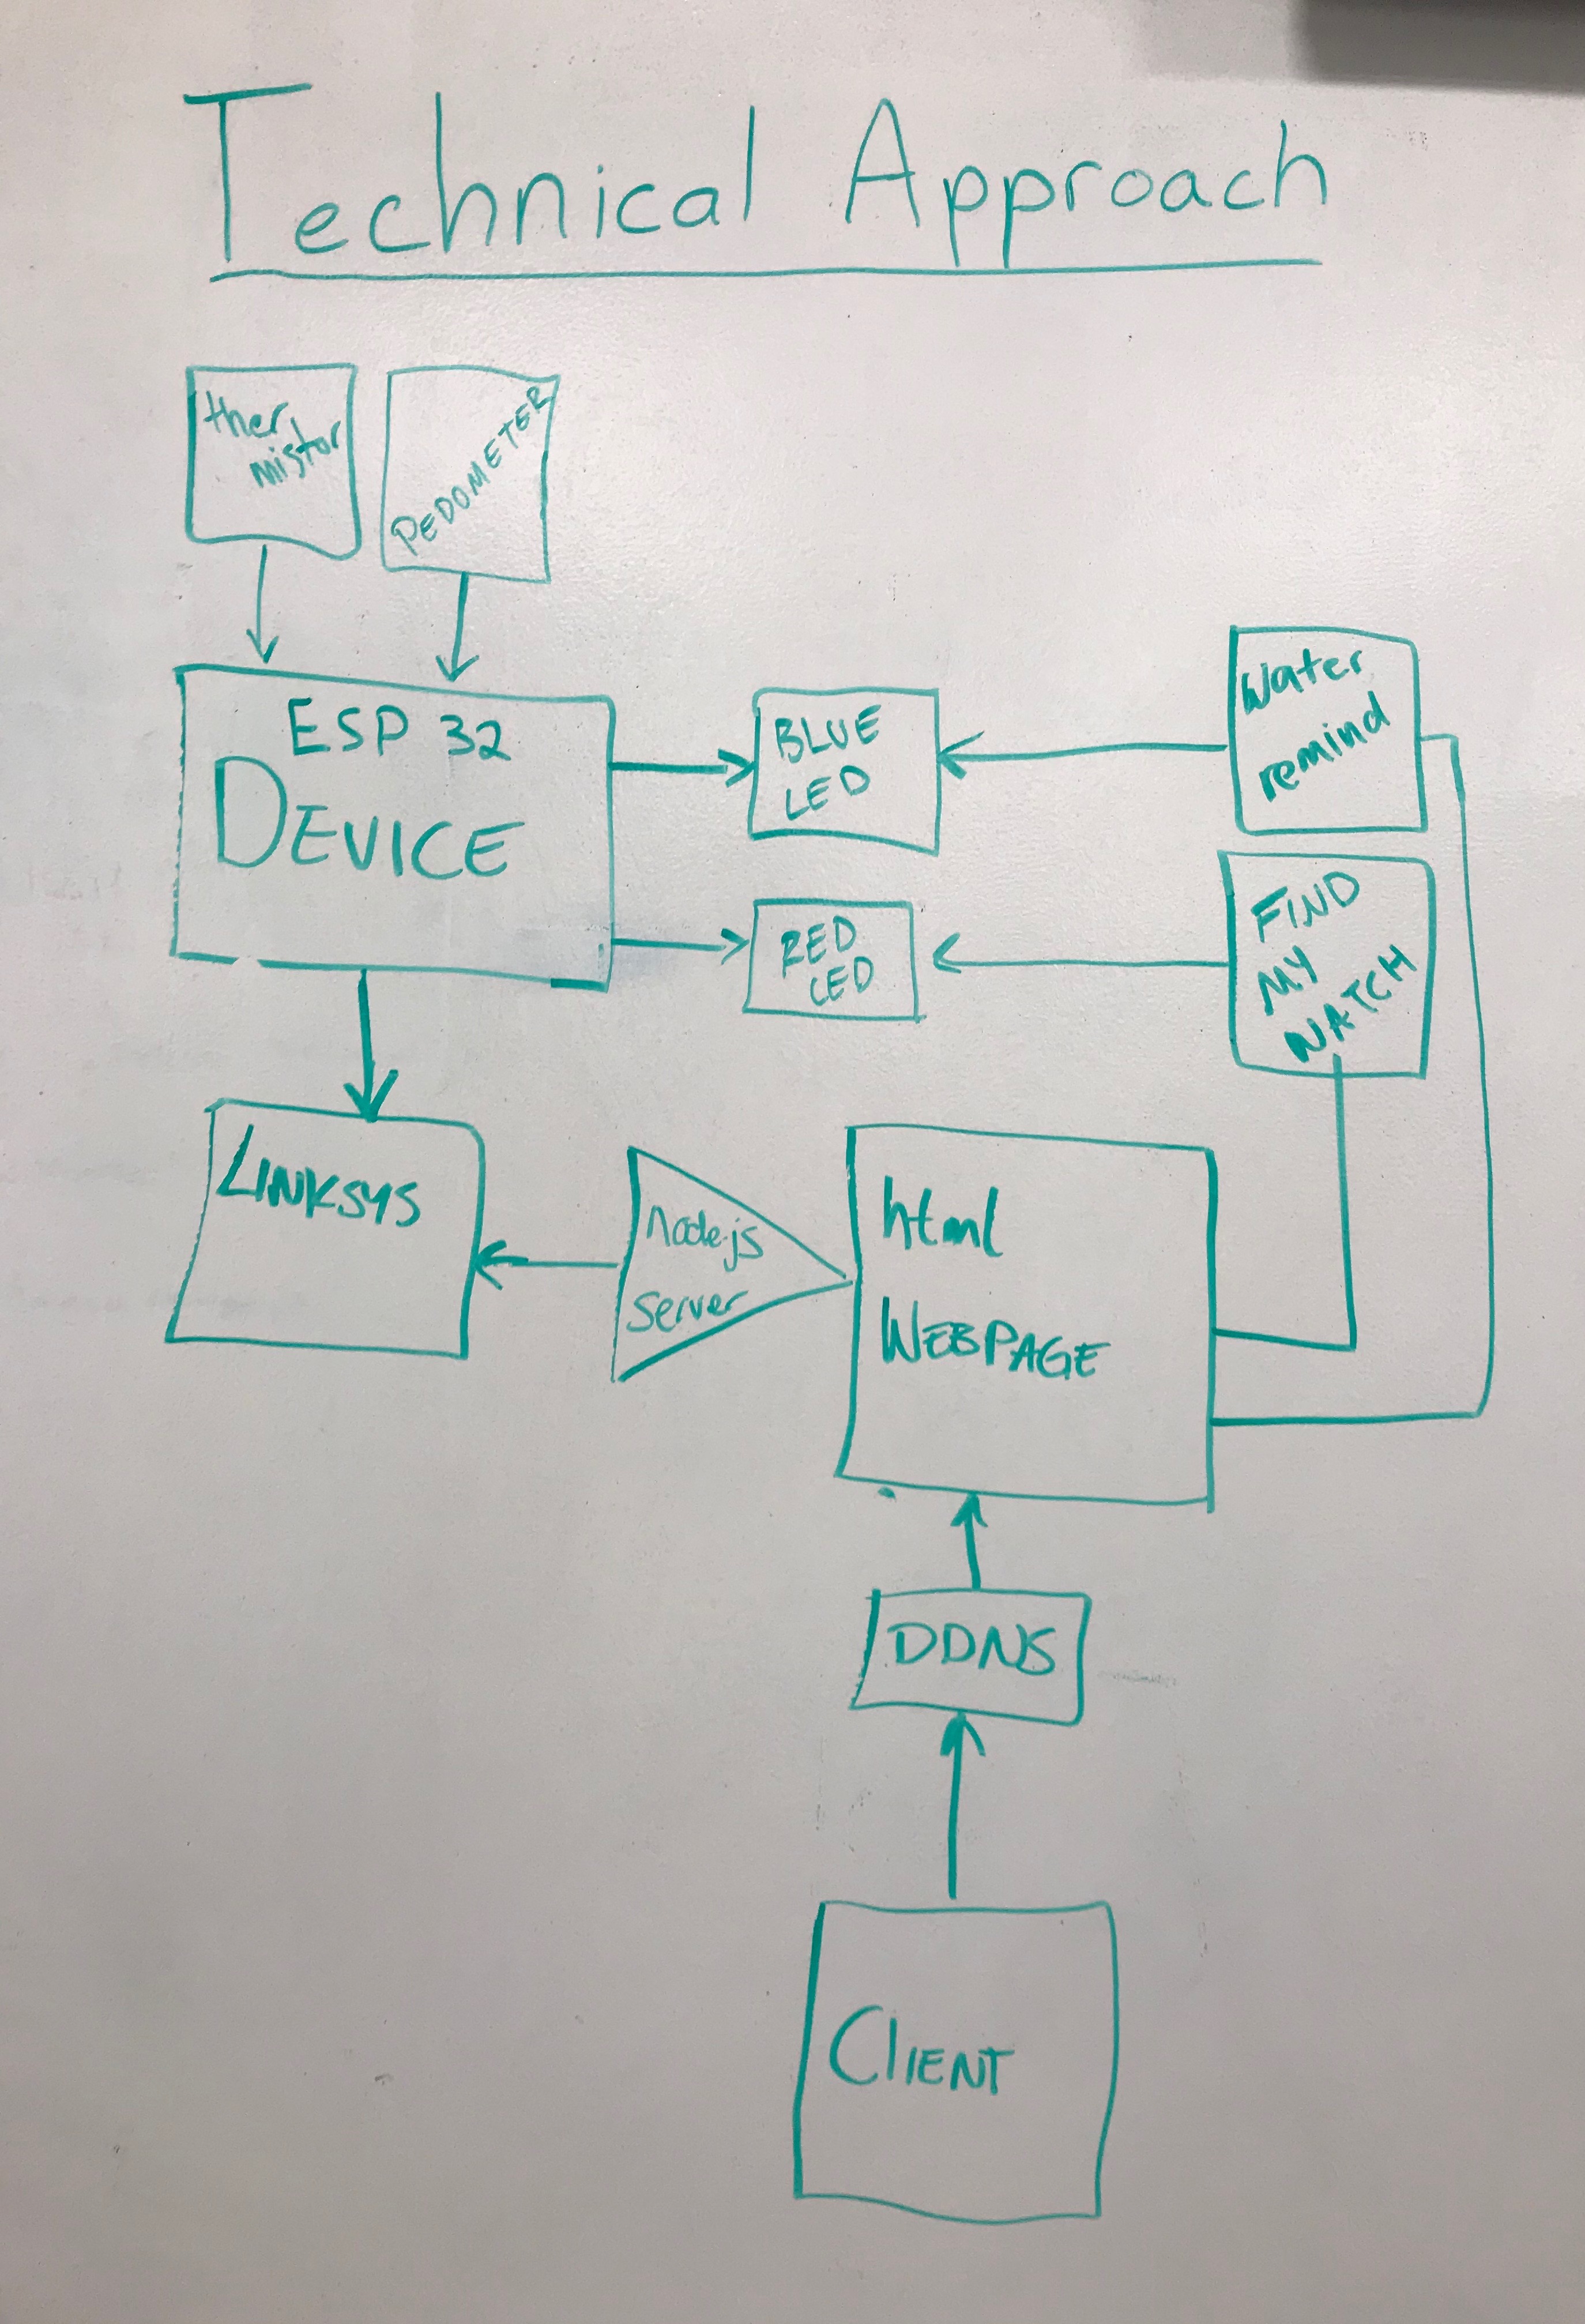 Technical Approach
ther
mistor
PEDOMETER
ESP 32
DEVICE
BLUE
LED
Water
remind
RED
LED
FIND
MY
WATCH
LINKSYS
Node.js
Server
html
WEBPAGE
DDNS
CLIENT